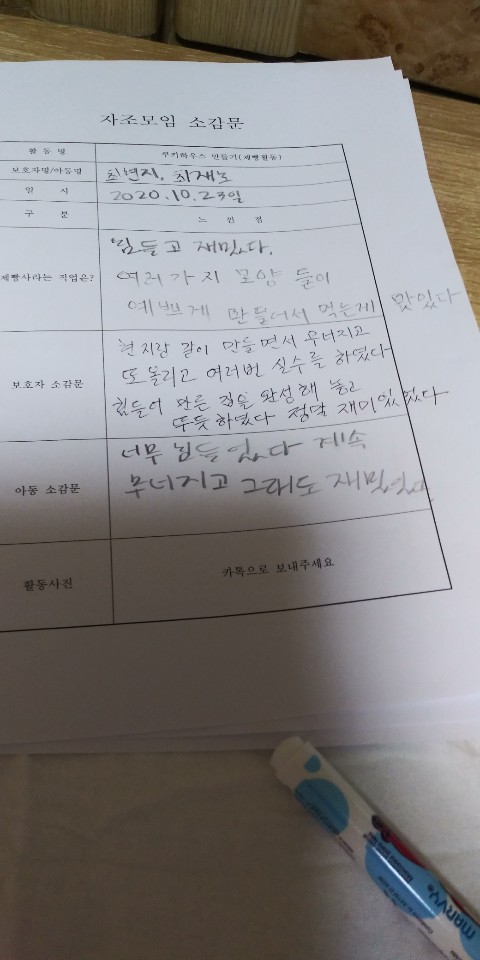 자조모임 소감문
활 동 명 쿠키하우스 만들기(제빵활동)
보호자명/아동명 최현지, 최재노
일 시 2020.10.23일
구 분 느 낀 점
제빵사라는 직업은? 힘들고 재밌다.
여러가지 모양 들이
예쁘게 만들어서 먹는게 맛있다
보호자 소감문 현지랑 같이 만들면서 무너지고
또 올리고 여러번 실수를 하였다
힘들어 만든 집을 완성해 놓고
뚜듯하였다 정말 재미있었다
아동 소감문 너무 힘들었다 계속
무너지고 그래도 재밌었다
활동사진 카톡으로 보내주세요
marvy